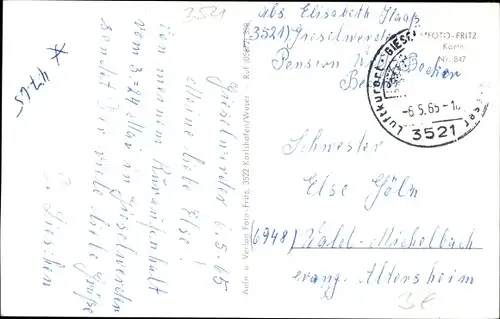 3521
abs. Elisabeth
3521) Gieselwerder
Pension
FOTO-FRITZ
Karte
Nr. 847
Luftkurort GIESEL
-6.5.65-1
3521
Gieselwerder 6.5.65
Meine liebe Else!
Von meinem Kuraufenthalt
vom 3.-24 Mai in Gieselwerder
sendet Dir viele liebe Grüße
Lieschen
Aufn. u. Verlag Foto-Fritz, 3522 Karlshafen/Weser - Ruf
Schwester
Else
(6948) Wald-Michelbach
evang. Altersheim